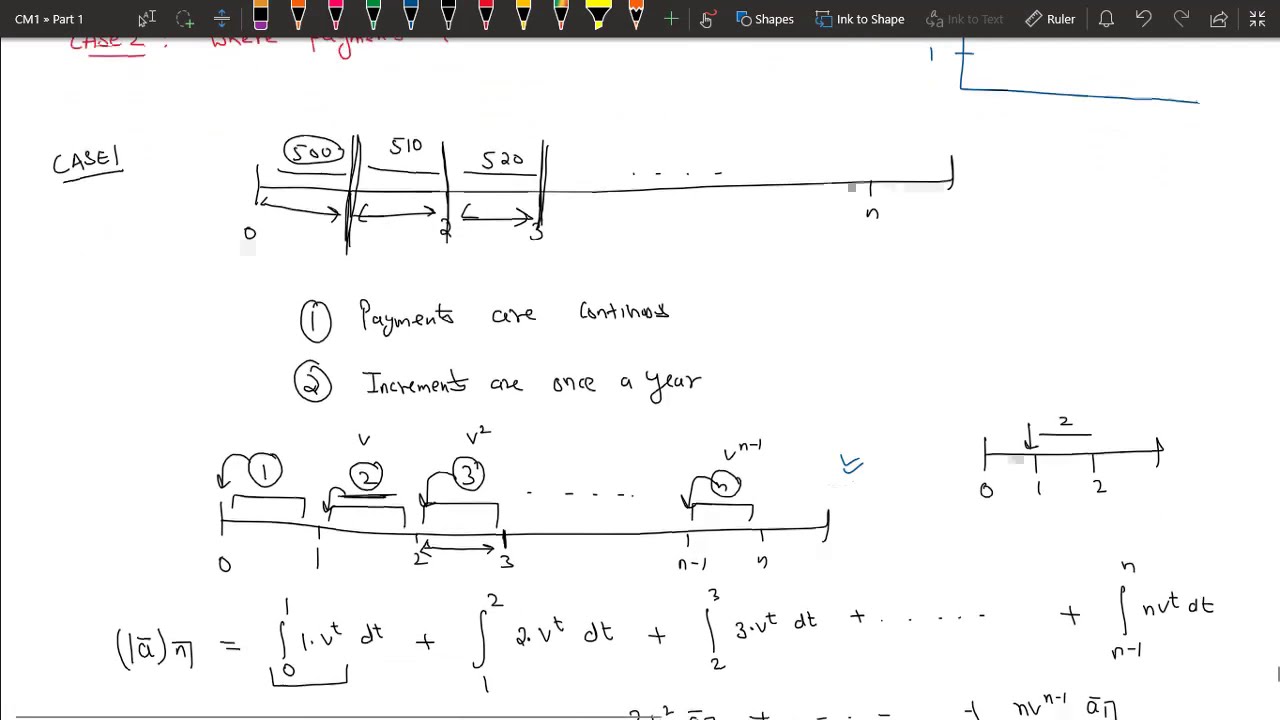 CM1 » Part 1
Shapes Ink to Shape Ink to Text Ruler
CASE 2 : Where payments
1
CASE 1
500 510 520 . . . .
0 2 3 n
① Payments are continous
② Increments are once a year
v v² vⁿ⁻¹
1 2 3 - - - - - n
0 1 2 3 n-1 n
2
0 1 2
(Iā)n̅| = ∫₀¹ 1·vᵗ dt + ∫₁² 2·vᵗ dt + ∫₂³ 3·vᵗ dt + . . . . . . + ∫ₙ₋₁ⁿ nvᵗ dt
nvⁿ⁻¹ ā